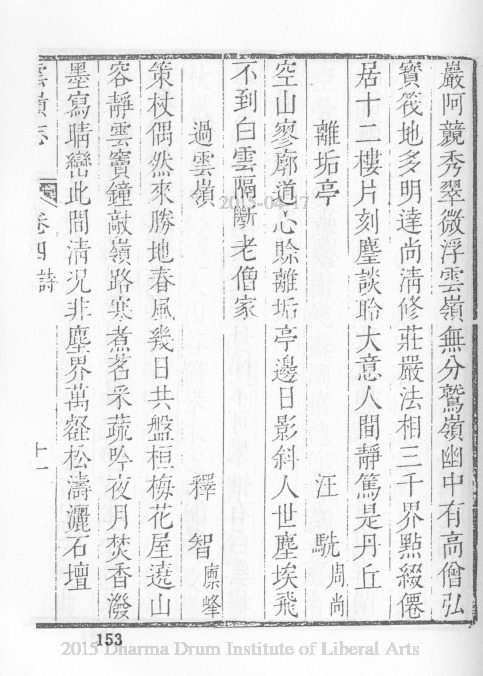 巖阿競秀翠微浮雲嶺無分鷲嶺幽中有高僧弘
寶筏地多明達尚清修莊嚴法相三千界點綴僊
居十二樓片刻麈談聆大意人間靜篤是丹丘
離垢亭　汪　駪周尚
空山寥廓道心賒離垢亭邊日影斜人世塵埃飛
不到白雲隔斷老僧家
過雲嶺　釋　智廩峰
策杖偶然來勝地春風幾日共盤桓梅花屋遶山
容靜雲寶鐘敲嶺路寒煮茗采蔬吟夜月焚香潑
墨寫晴巒此間清況非塵界萬壑松濤灑石壇
雲嶺志　卷四詩　十一
2015-04-17
153
2015 Dharma Drum Institute of Liberal Arts